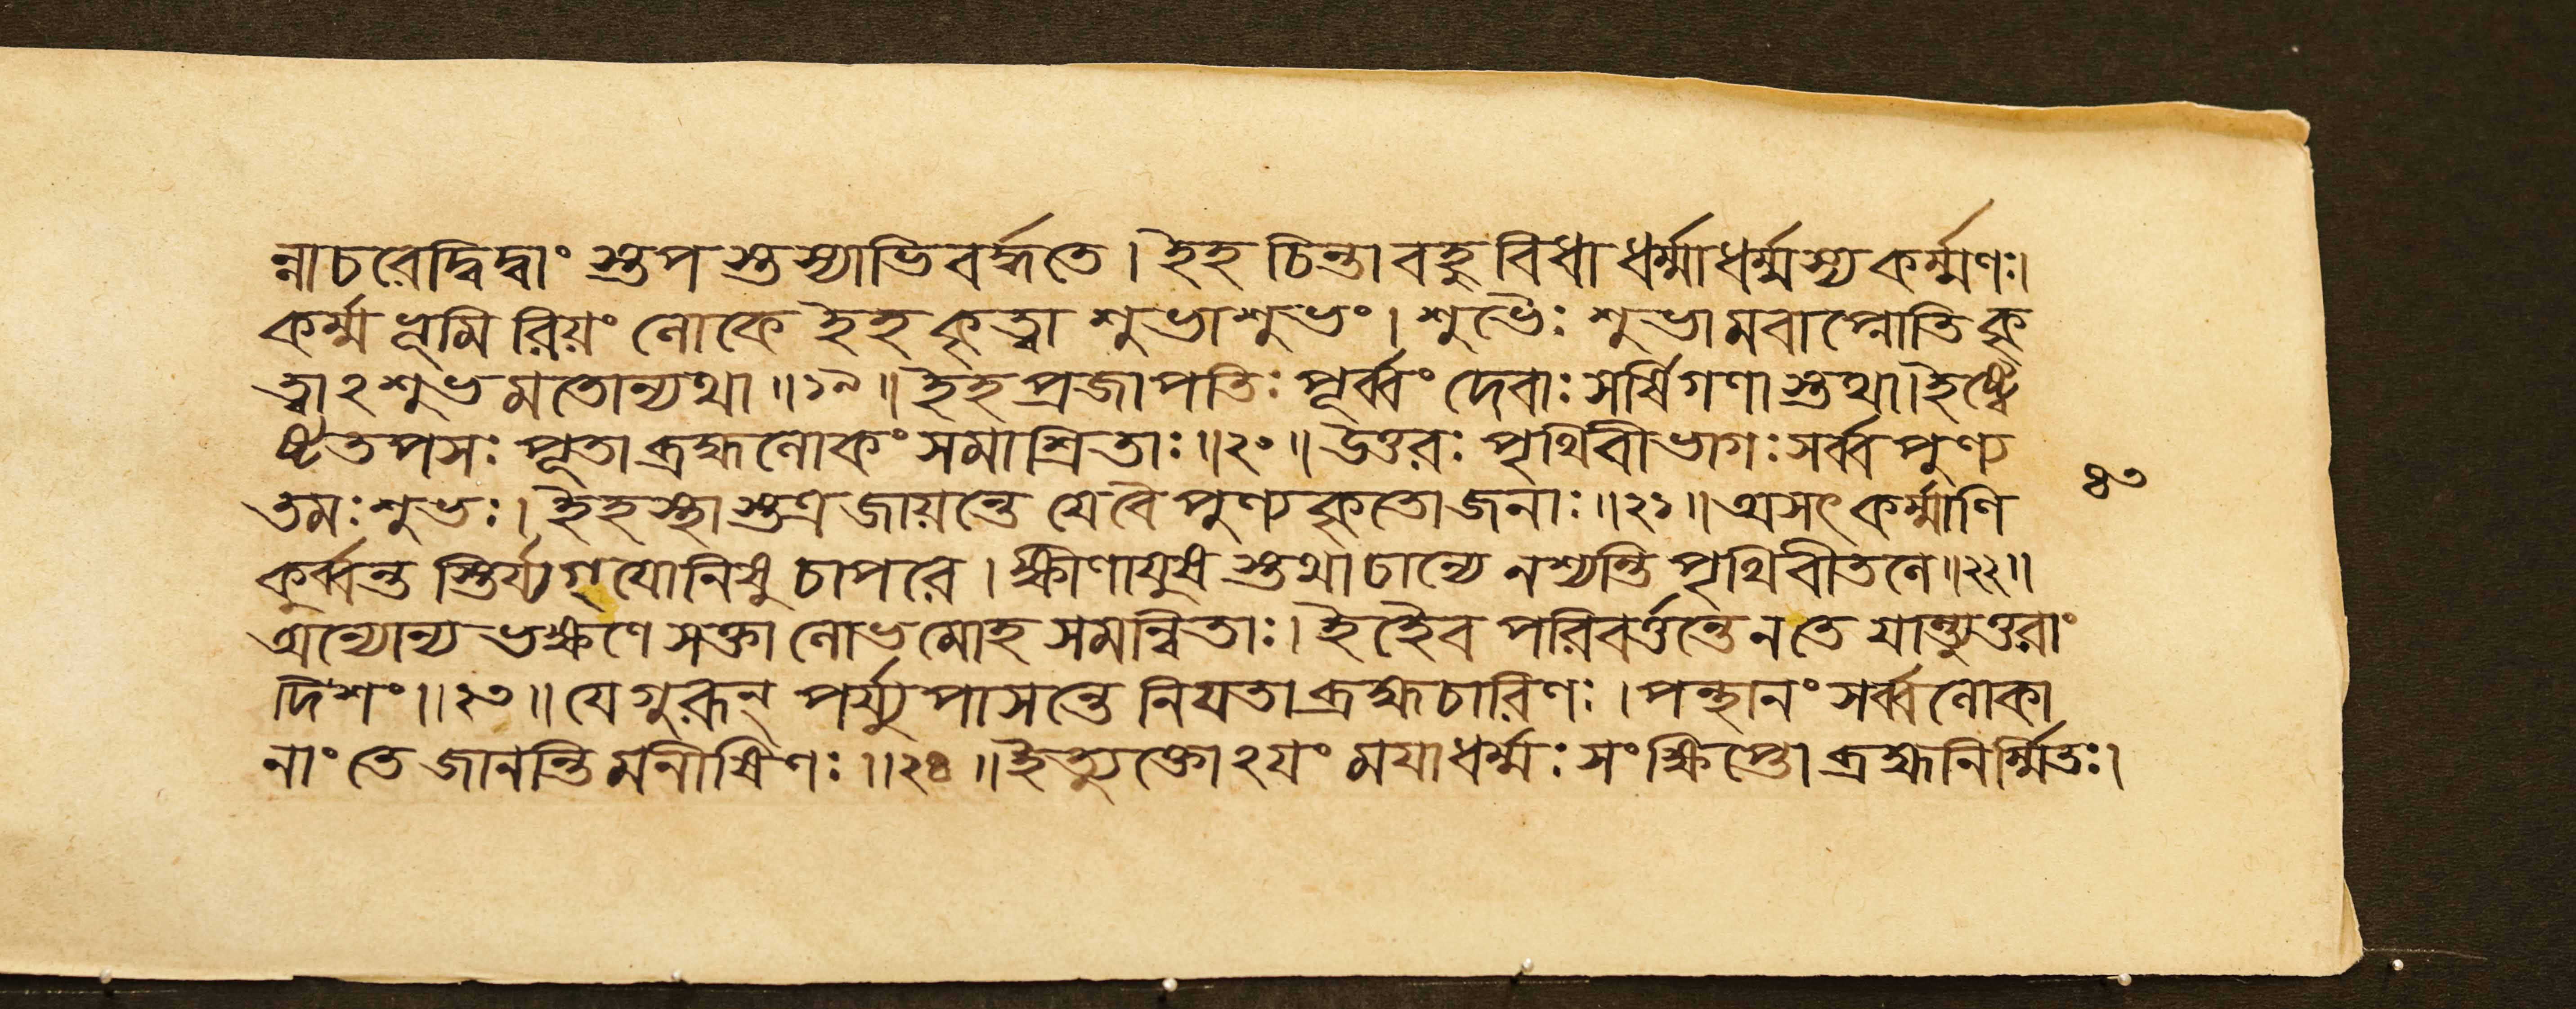 ন্নাচরেদ্বিদ্বাং স্তপস্তস্যাভিবর্দ্ধতে। ইহ চিন্তা বহুবিধা ধর্ম্মাধর্ম্মস্য কর্ম্মণঃ।
কর্ম্মভূমিরিয়ং লোকে ইহ কৃত্বা শুভাশুভং। শুভৈঃ শুভামবাপ্নোতি কৃ
ত্বাঽশুভমতোন্যথা॥১৯॥ ইহ প্রজাপতিঃ পূর্ব্বং দেবাঃ সর্ষিগণাস্তথা। ইষ্ট্বে
ষ্টতপসঃ পূতা ব্রহ্মলোকং সমাশ্রিতাঃ॥২০॥ উত্তরঃ পৃথিবীভাগঃ সর্ব্বপুণ্য
তমঃ শুভঃ। ইহস্থাস্তত্র জায়ন্তে যে বৈ পুণ্যকৃতো জনাঃ॥২১॥ অসৎ কর্ম্মাণি
কুর্ব্বন্ত স্তির্য্যগ্‌যোনিষু চাপরে। ক্ষীণায়ুষ স্তথা চান্যে নশ্যন্তি পৃথিবীতলে॥২২॥
অন্যোন্য ভক্ষণে সক্তা লোভমোহ সমন্বিতাঃ। ইহৈব পরিবর্ত্তন্তে ন তে যান্ত্যুত্তরাং
দিশং॥২৩॥ যে গুরূন্ পর্য্যুপাসন্তে নিযতা ব্রহ্মচারিণঃ। পন্থানং সর্ব্বলোকা
নাং তে জানন্তি মনীষিণঃ॥২৪॥ ইত্যুক্তোঽযং মযা ধর্ম্মঃ সংক্ষিপ্তো ব্রহ্মনির্ম্মিতঃ।
৪৩